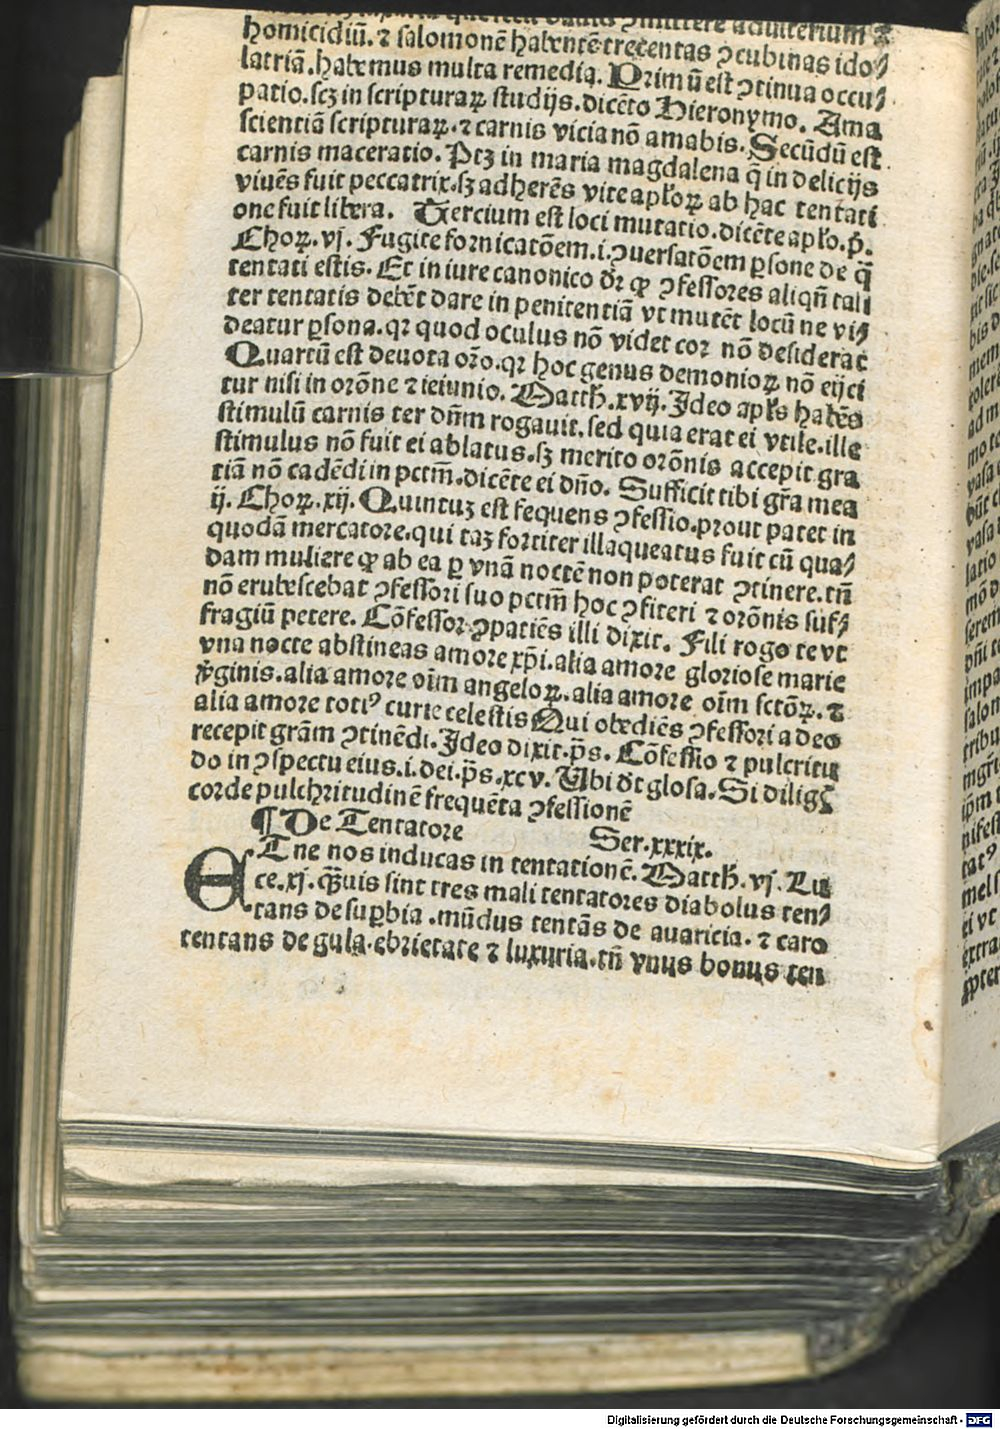 que fecit dauid ꝯmittere adulterium ⁊
homicidiū. ⁊ salomonē habentē trecentas ꝯcubinas ido⸗
latriā. habemus multa remedia. Primū est ꝯtinua occu⸗
patio. scꝫ in scripturaꝝ studijs. dicēto Hieronymo. Ama
scientiā scripturaꝝ. ⁊ carnis vicia nō amabis. Secūdū est
carnis maceratio. Ptꝫ in maria magdalena q̄ in delicijs
viuēs fuit peccatrix. sꝫ adherēs vite apl̄oꝝ ab hac tentati
one fuit libera. Tercium est loci mutatio. dicēte apl̄o. p̄.
Choꝝ. vj. Fugite fornicatōem. i. ꝯuersatōem ꝑsone de q̄
tentati estis. Et in iure canonico dr̄ ꝙ ꝯfessores aliqn̄ tali
ter tentatis debēt dare in penitentiā vt mutēt locū ne vi⸗
deatur ꝑsona. qꝛ quod oculus nō videt cor nō desiderat
Quartū est deuota or̄o. qꝛ hoc genus demonioꝝ nō eijci
tur nisi in orōne ⁊ ieiunio. Matth̄. xvij. Ideo apl̄s habēs
stimulū carnis ter dn̄m rogauit. sed quia erat ei vtile. ille
stimulus nō fuit ei ablatus. sꝫ merito orōnis accepit gra
tiā nō cadēdi in pctm̄. dicēte ei dn̄o. Sufficit tibi gr̄a mea
ij. Choꝝ. xij. Quintuꝫ est fequens ꝯfessio. prout patet in
quodā mercatore. qui taꝫ fortiter illaqueatus fuit cū qua⸗
dam muliere ꝙ ab ea ꝑ vnā noctē non poterat ꝯtinere. tn̄
nō erubescebat ꝯfessori suo pctm̄ hoc ꝯfiteri ⁊ orōnis suf⸗
fragiū petere. Cōfessor ꝯpatiēs illi dixit. Fili rogo te vt
vna nocte abstineas amore xp̄i. alia amore gloriose marie
v̓ginis. alia amore oīm angeloꝝ. alia amore oīm sctōꝝ. ⁊
alia amore totiꝰ curie celestis Qui obediēs ꝯfessori a deo
recepit grām ꝯtinēdi. Ideo dixit. p̄s. Cōfessio ⁊ pulcritu
do in ꝯspectu eius. i. dei. p̄s. xcv. Ubi dt̄ glosa. Si diligꝭ
corde pulchritudinē frequēta ꝯfessionē
¶ De Tentatore Ser. xxxix.
ET ne nos inducas in tentationē. Matth̄. vj. Lu
ce. xj. qͣ̄uis sint tres mali tentatores diabolus ten⸗
tans de suꝑbia. mūdus tentās de auaricia. ⁊ caro
tentans de gula. ebrietate ⁊ luxuria. tn̄ vnus bonus ten
Digitalisierung gefördert durch die Deutsche Forschungsgemeinschaft - DFG